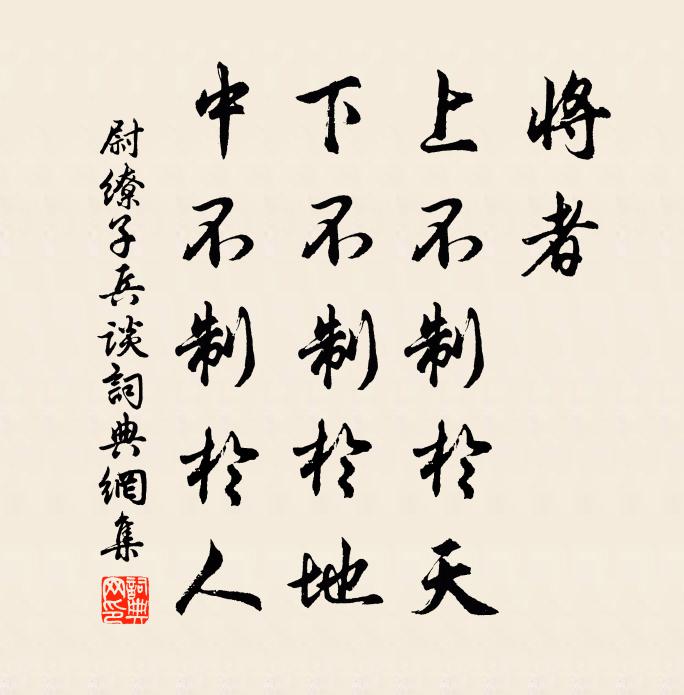 將者
上不制於天
下不制於地
中不制於人
尉繚子兵談詞典網集
詞典網印